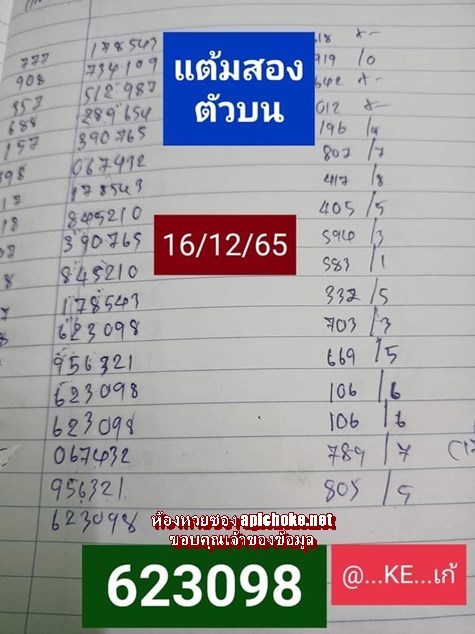 178543
แต้มสอง
ตัวบน
777
734109
919 /0
908
512987
642 x-
357
289654
012 x-
688
390765
196 /4
157
067412
807 /7
398
178543
417 /8
845210
405 /5
390765
16/12/65
594 /3
845210
583 /1
178543
332 /5
623098
703 /3
956321
669 /5
623098
106 /6
623098
106 /6
067432
789 /7
956321
805 /5
623098
ห้องหวยซอง aplchoke.net
ขอบคุณเจ้าของข้อมูล
623098
@...KE...เก้